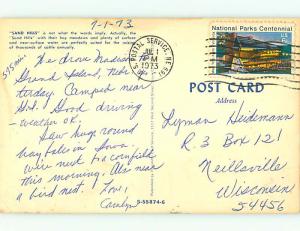 9-1-73
"SAND HILLS" is not what the words imply. Actually, the
"Sand Hills" with their and plenty of surface
and near-surface water are perfectly suited for the raising
of thousands of cattle annually.
595 miles
We drove Madison
Grand Island, Nebr.
terday. Camped near
Good driving
- weather OK.
Saw huge round
hay bales in Iowa.
Were next to a cornfield
this morning. Also near
a bird nest. Love,
Carolyn
S-55874-6
U.S. POSTAL SERVICE, NE
PM
1973
National Parks Centennial
POST CARD
Address
Lyman Heidemann
R 3 Box 121
Neillsville
Wisconsin
54456